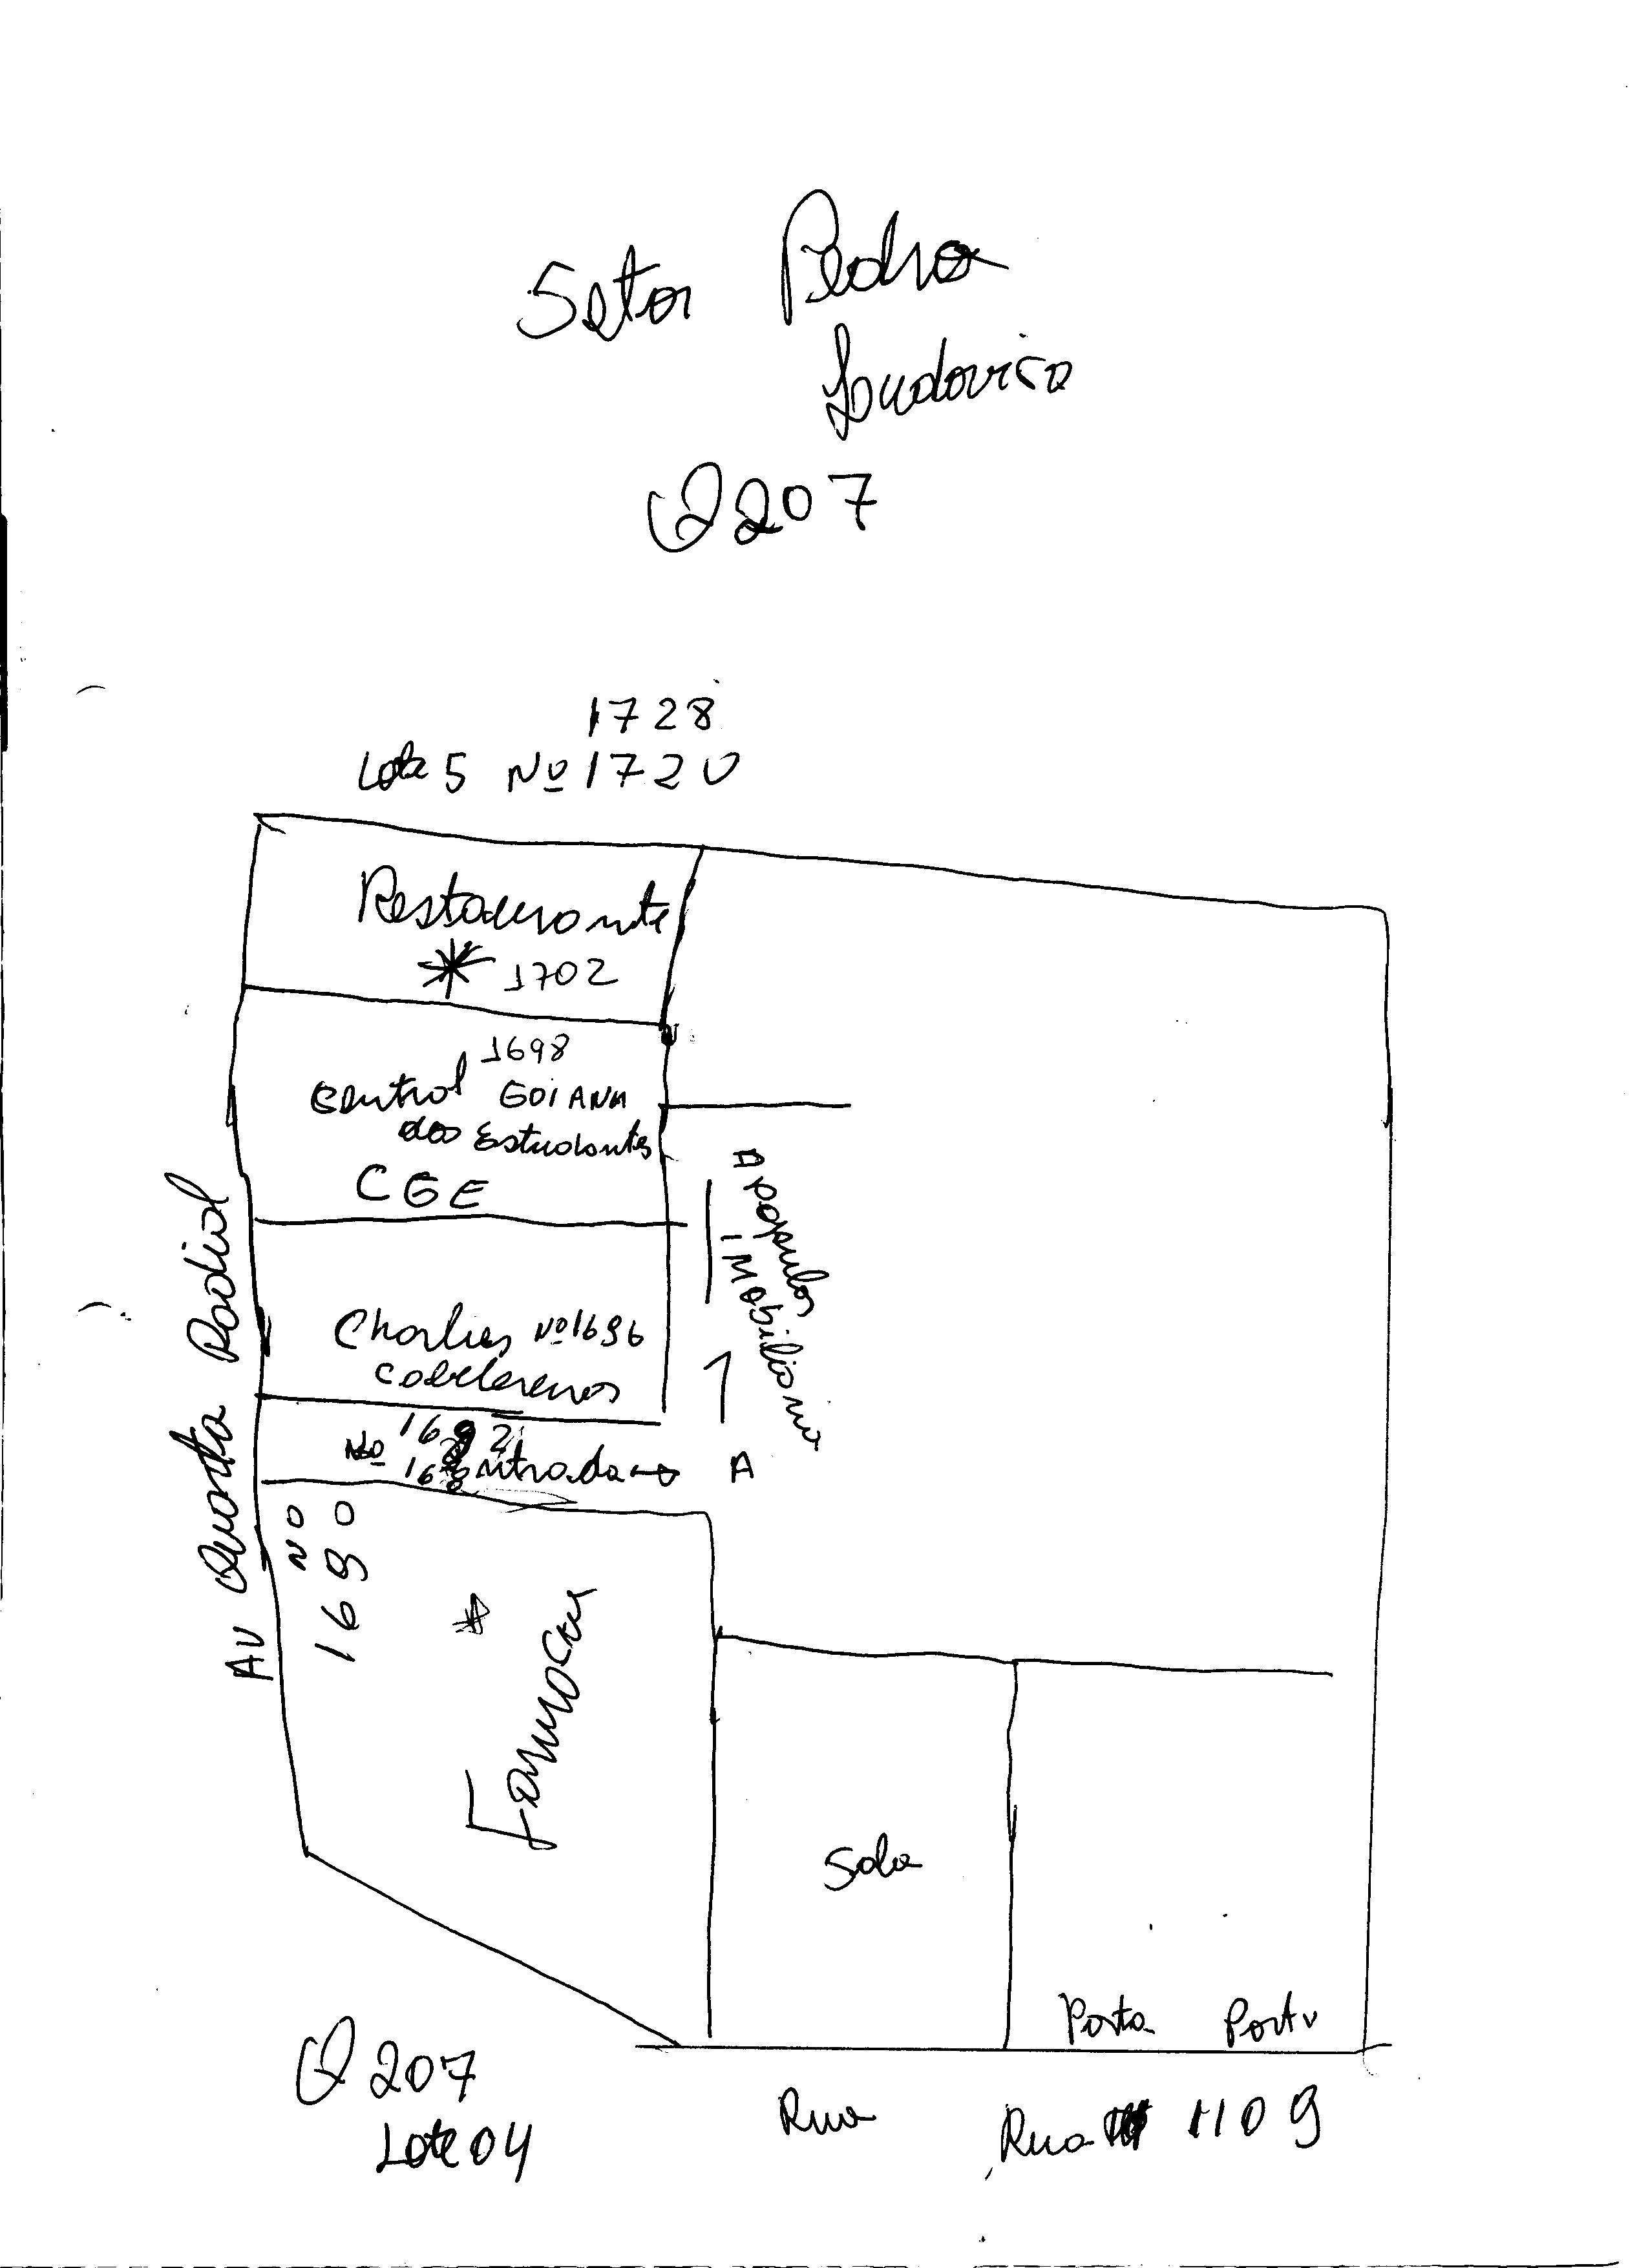 Setor Pedro
Ludovico
Q 207
1728
Lote 5 Nº 1720
Restaurante
1702
1698
Central GOIANA
dos Estudantes
CGE
Charlies Nº 1696
Cabelereiros
Nº 1692
Entrada
A
A
IMObiliaria
Av Quarta Radial
NO
1690
Farmacia
Sala
Porta Porta
Q 207
Lote 04
Rua
Rua 1109